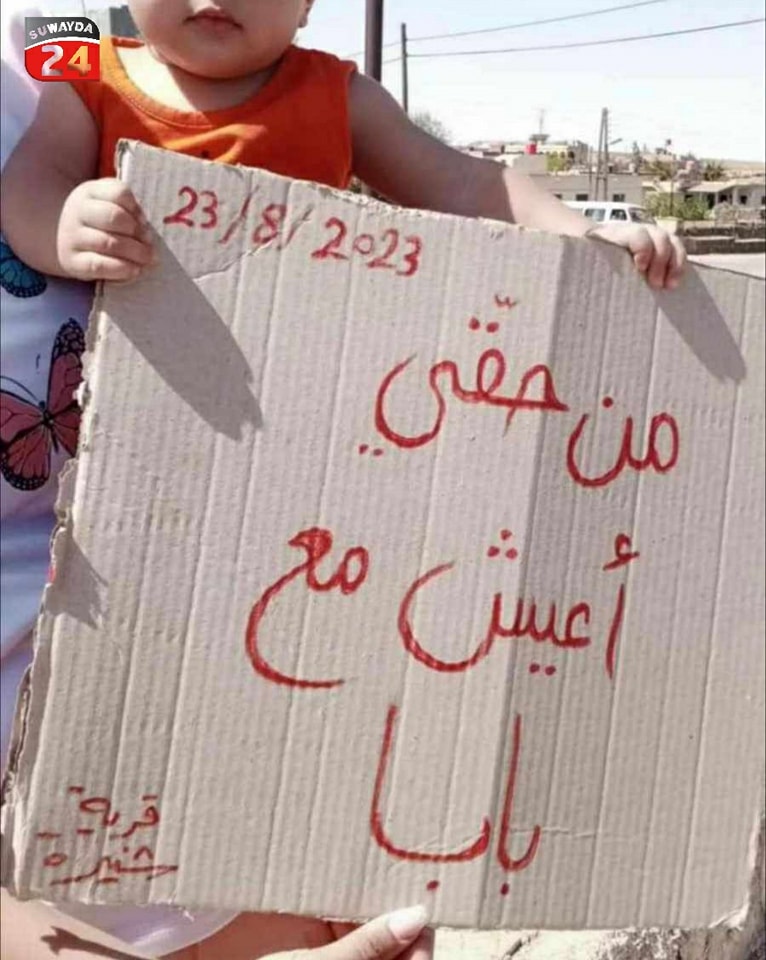 SUWAYDA
24
23/8/2023
من حقّي
أعيش مع
بابا
قرية
شنيرة